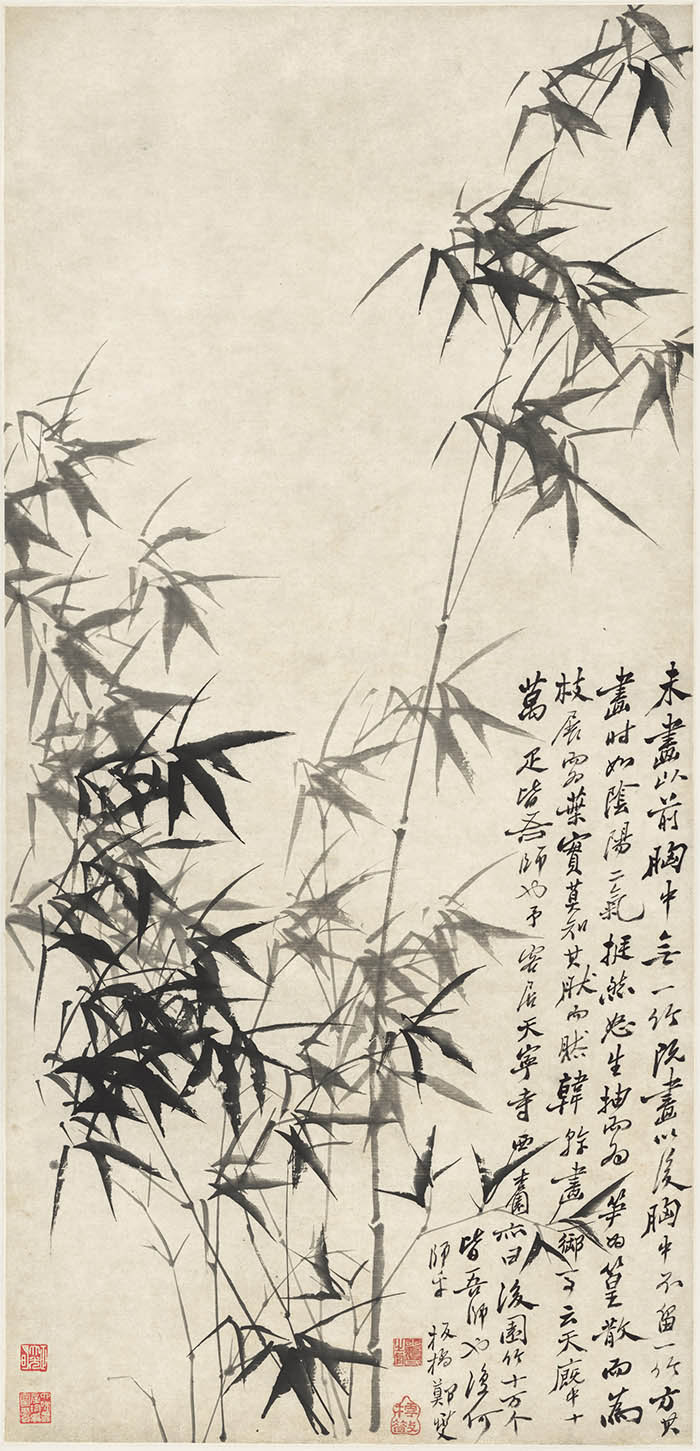 未畫以前胸中無一竹既畫以後胸中不留一竹方其
畫時如陰陽二氣挺然怒生抽而為笋為篁散而為
枝展而為葉實莫知其然而然韓幹畫御馬云天廄中十
萬疋皆吾師也予客居天寧寺西杏園亦曰後園竹十万个
皆吾師也復何
師乎板橋鄭燮